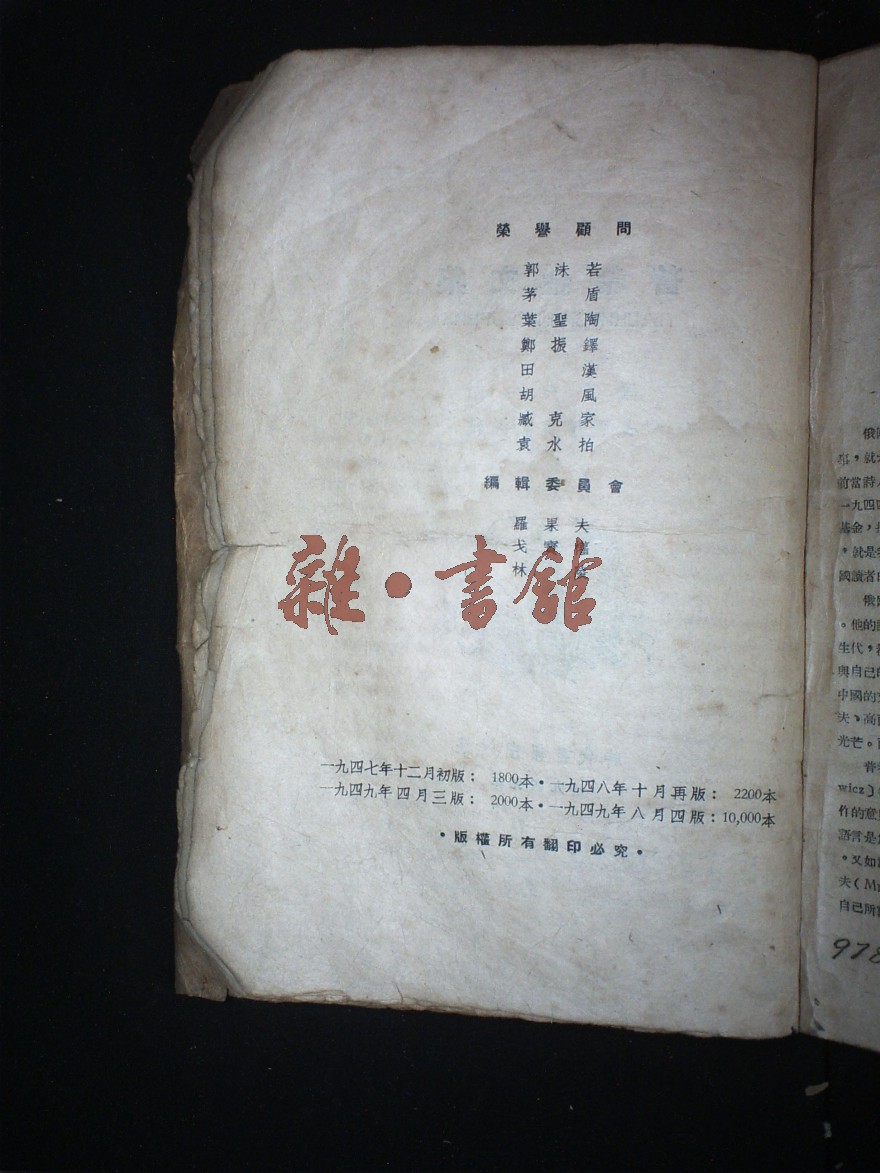 榮譽顧問
郭沫若
茅盾
葉聖陶
鄭振鐸
田漢
胡風
臧克家
袁水拍
編輯委員會
羅果夫
戈寶
林
雜·書館
一九四七年十二月初版：1800本·一九四八年十月再版：2200本
一九四九年四月三版：2000本·一九四九年八月四版：10,000本
·版權所有翻印必究·
，就
前當時
一九四
基金，
，就是
國讀者
俄
。他的
生代，
與自己的
中國的
夫、高
光芒。
普
wicz〕
作的意
語言是
。又如
夫（M
自己所
978